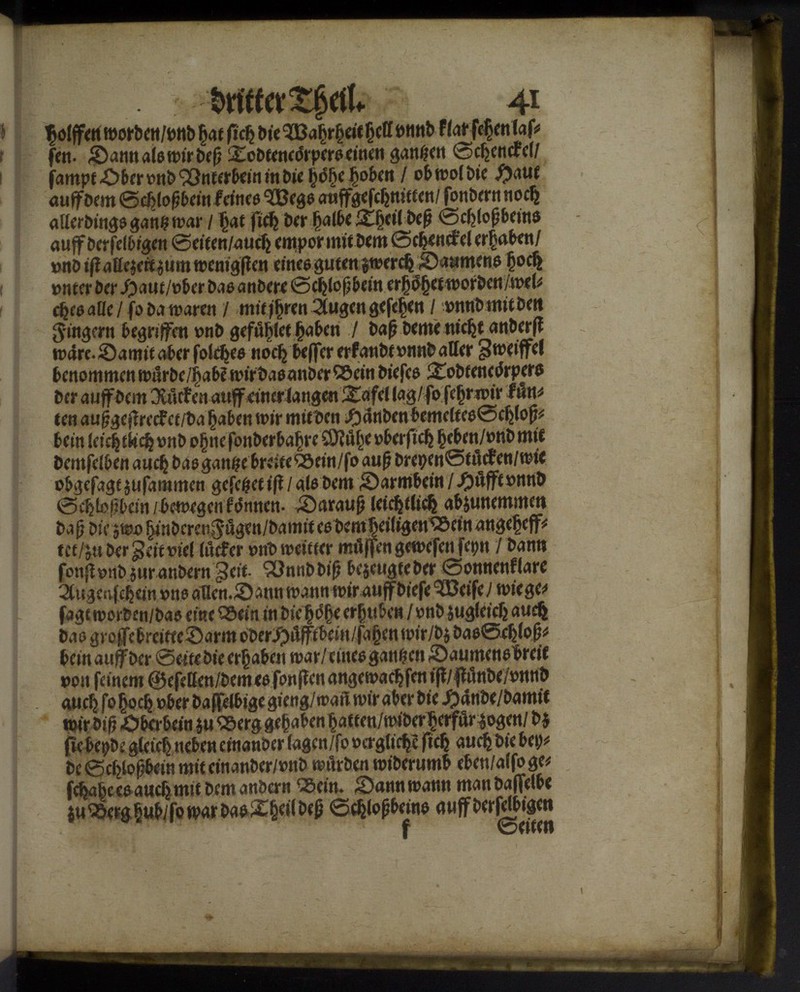 dritter Theil. 41
holffen worden/vnd hat sich die Warheit hell vnnd klar sehen las⸗
sen. Dann als wir deß Todtencörpers einen gantzen Schenckel/
sampt Ober vnd Vnterbein in die höhe hoben / ob wol die Haut
auff dem Schloßbein keines Wegs auffgeschnitten/ sondern noch
allerdings gantz war / hat sich der halbe Theil deß Schloßbeins
auff derselbigen Seiten/auch empor mit dem Schenckel erhaben/
vnd ist allezeit zum wenigsten eines guten zwerch Daumens hoch
vnter der Haut/vber das andere Schloßbein erhöhet worden/wel⸗
ches alle / so da waren / mit jhren Augen gesehen / vnnd mit den
Fingern begriffen vnd gefühlet haben / daß deme nicht anderst
wäre. Damit aber solches noch besser erkandt vnnd aller Zweiffel
benommen würde/habē wir das ander Bein dieses Todtencörpers
der auff dem Rücken auff einer langen Tafel lag/ so sehr wir kün⸗
ten außgestrecket/da haben wir mit den Händen bemeltes Schloß⸗
bein leichtlich vnd ohne sonderbahre Mühe vbersich heben/vnd mit
demselben auch das gantze breite Bein/so auß dreyen Stücken/wie
obgesagt zusammen gesetzet ist / als dem Darmbein / Hüfft vnnd
Schloßbein / bewegen können. Darauß leichtlich abzunemmen
daß die zwo hinderen Fügen/damit es dem heiligen Bein angeheff⸗
tet/zu der Zeit viel lücker vnd weitter müssen gewesen seyn / dann
sonst vnd zur andern Zeit. Vnnd diß bezeugte der Sonnenklare
Augenschein vns allen. Dann wann wir auff diese Weise / wie ge⸗
sagt worden/das eine Bein in die höhe erhuben / vnd zugleich auch
das grosse breitte Darm oder Hüfftbein/sahen wir/dz das Schloß⸗
bein auff der Seite die erhaben war/ eines gantzen Daumens breit
von seinem Gesellen/dem es sonsten angewachsen ist/ stünde/vnnd
auch so hoch vber dasselbige gieng/wañ wir aber die Hände/damit
wir diß Oberbein zu Berg gehaben hatten/wider herfür zogen/ dz
sie beyde gleich neben einander lagen/so verglichē sich auch die bey⸗
de Schloßbein mit einander/vnd würden widerumb eben/also ge⸗
schahe es auch mit dem andern Bein. Dann wann man dasselbe
zu Berg hub/so war das Theil deß Schloßbeins auff derselbigen
f Seiten